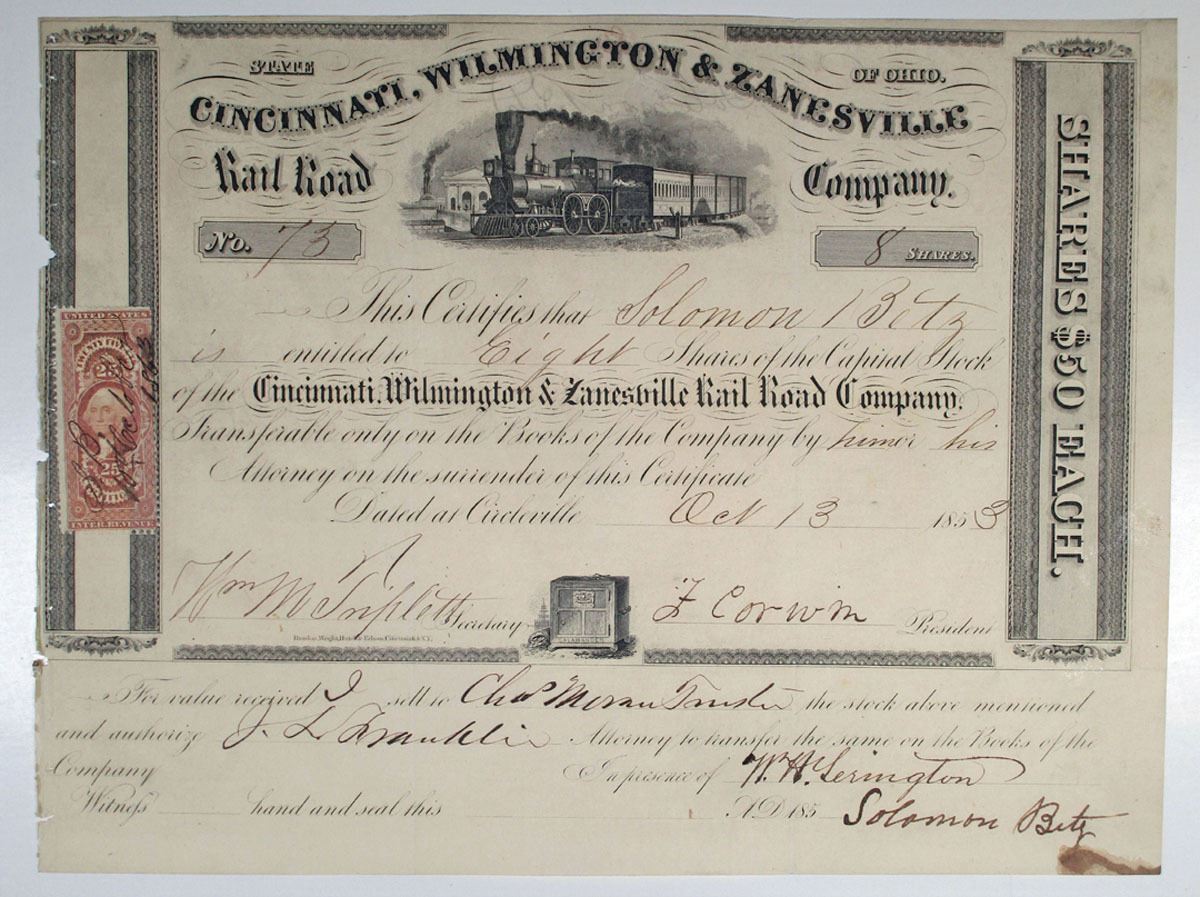 STATE OF OHIO.
CINCINNATI, WILMINGTON & ZANESVILLE
Rail Road Company.
No. 73
8 SHARES.
This Certifies that Solomon Betz
is entitled to Eight Shares of the Capital Stock
of the Cincinnati, Wilmington & Zanesville Rail Road Company.
Transferable only on the Books of the Company by him or his
Attorney on the surrender of this Certificate
Dated at Circleville Oct 13 1853
Wm M Triplett Secretary
F Corwin President
SHARES $50 EACH.
UNITED STATES
25
25
INTER. REVENUE
For value received I sell to Chas Moran Trustee the stock above mentioned
and authorize J. L. Franklin Attorney to transfer the same on the Books of the
Company In presence of
Witness hand and seal this A.D. 185
Solomon Betz